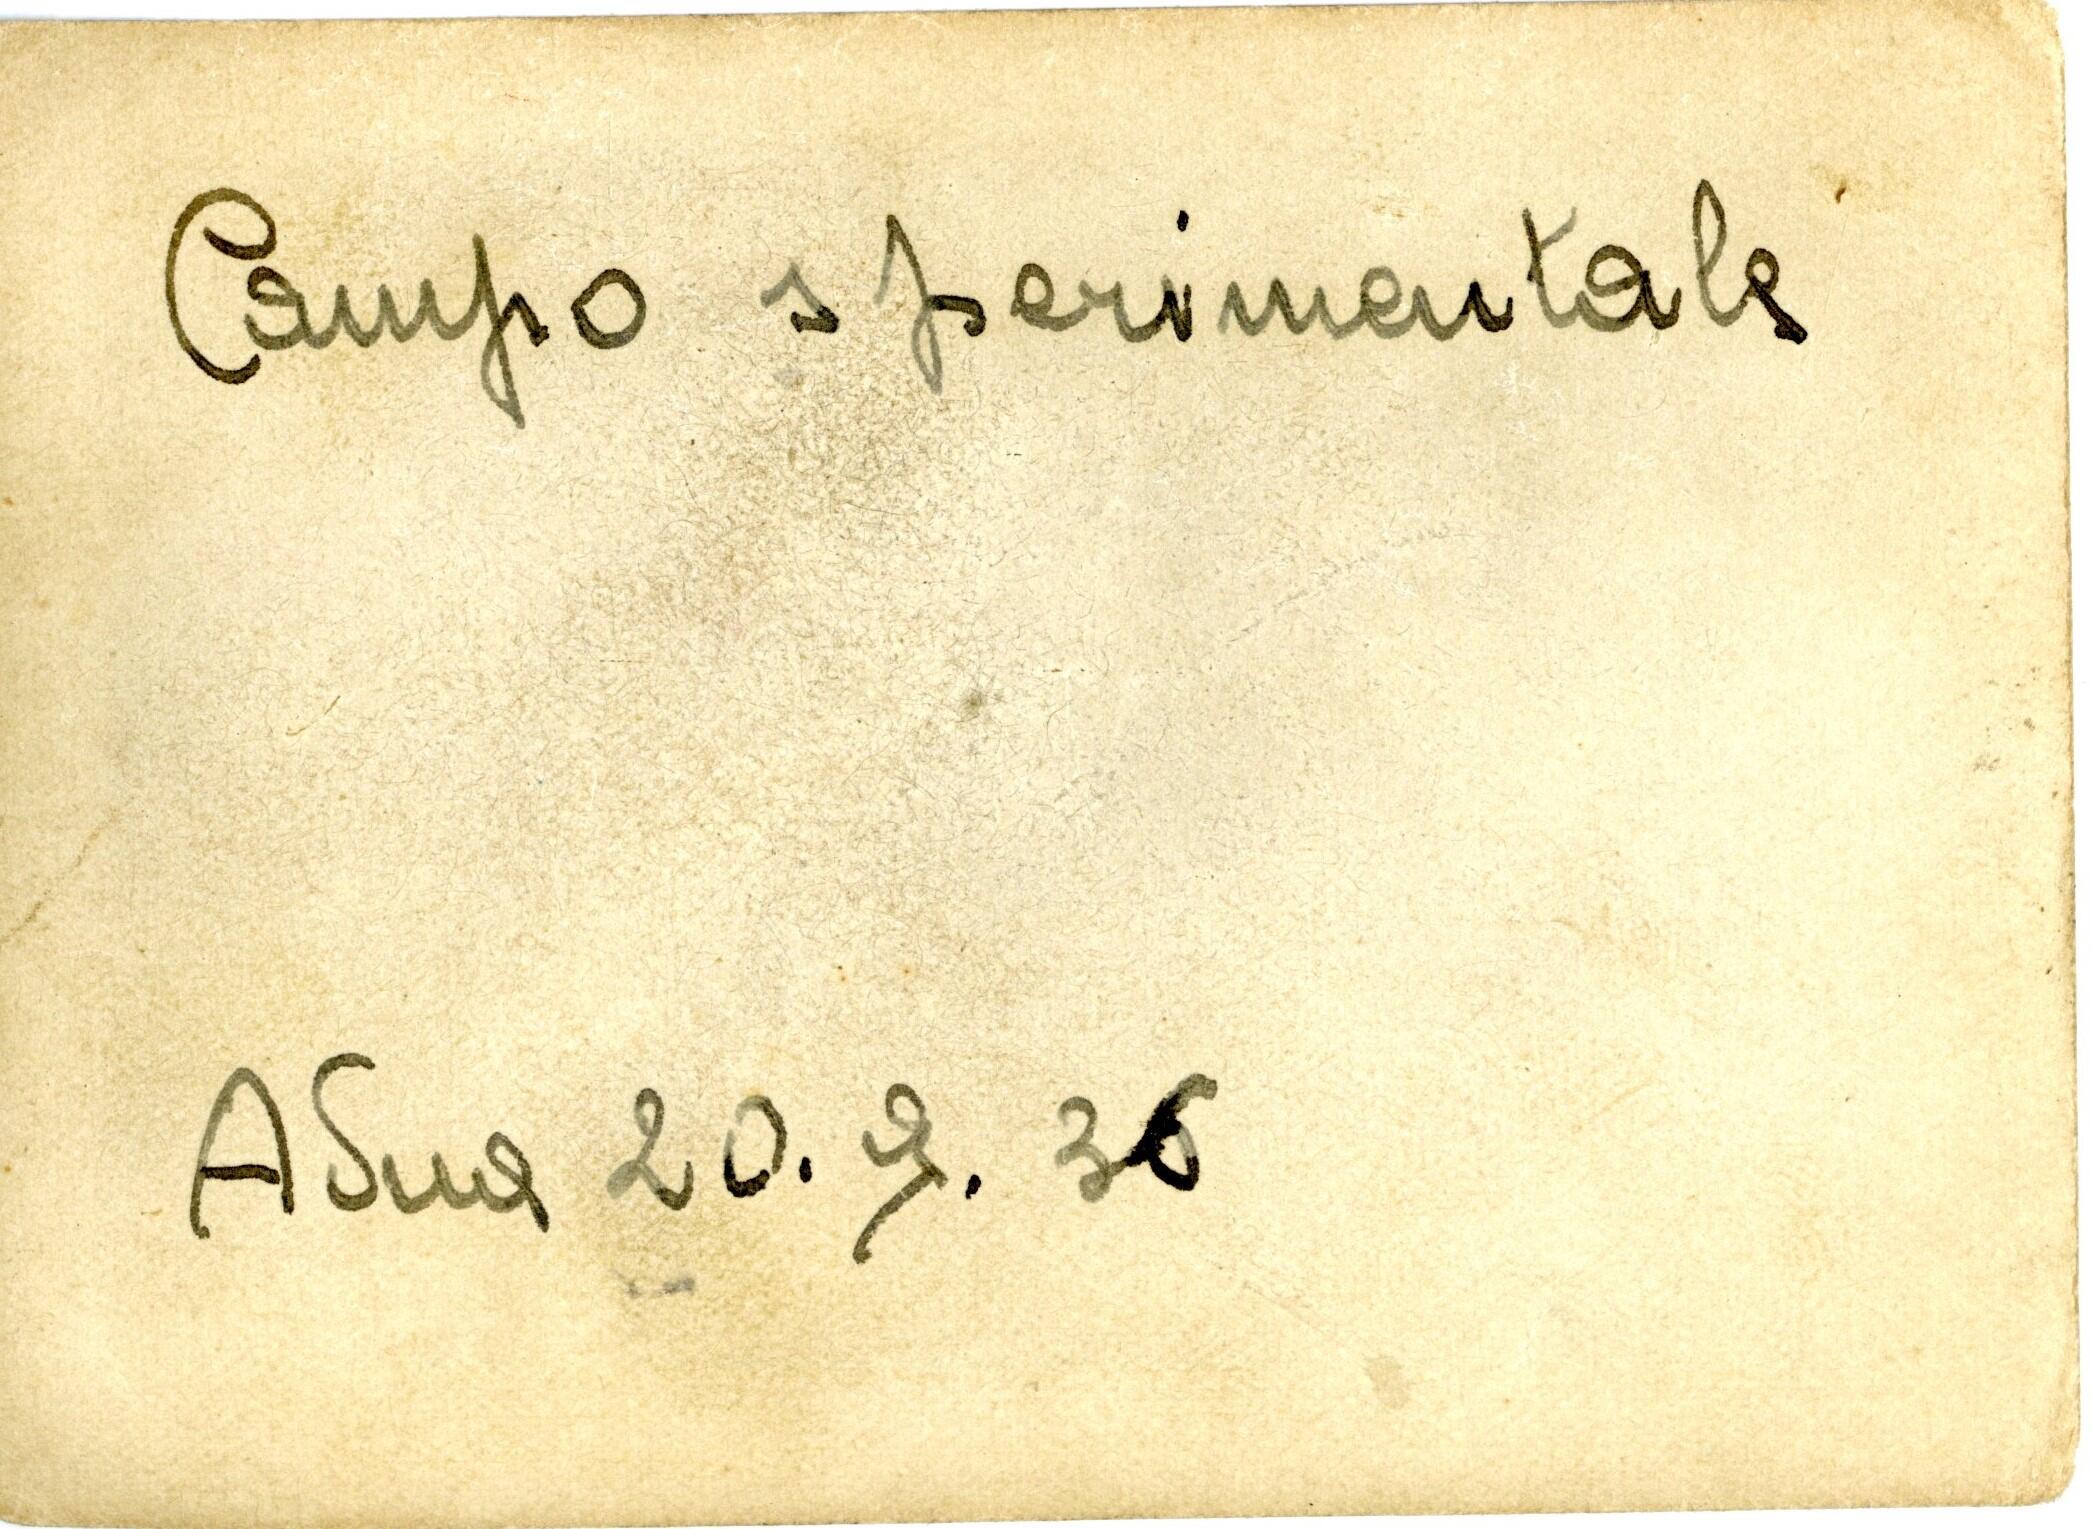 Campo sperimentale
Adua 20. 9. 36